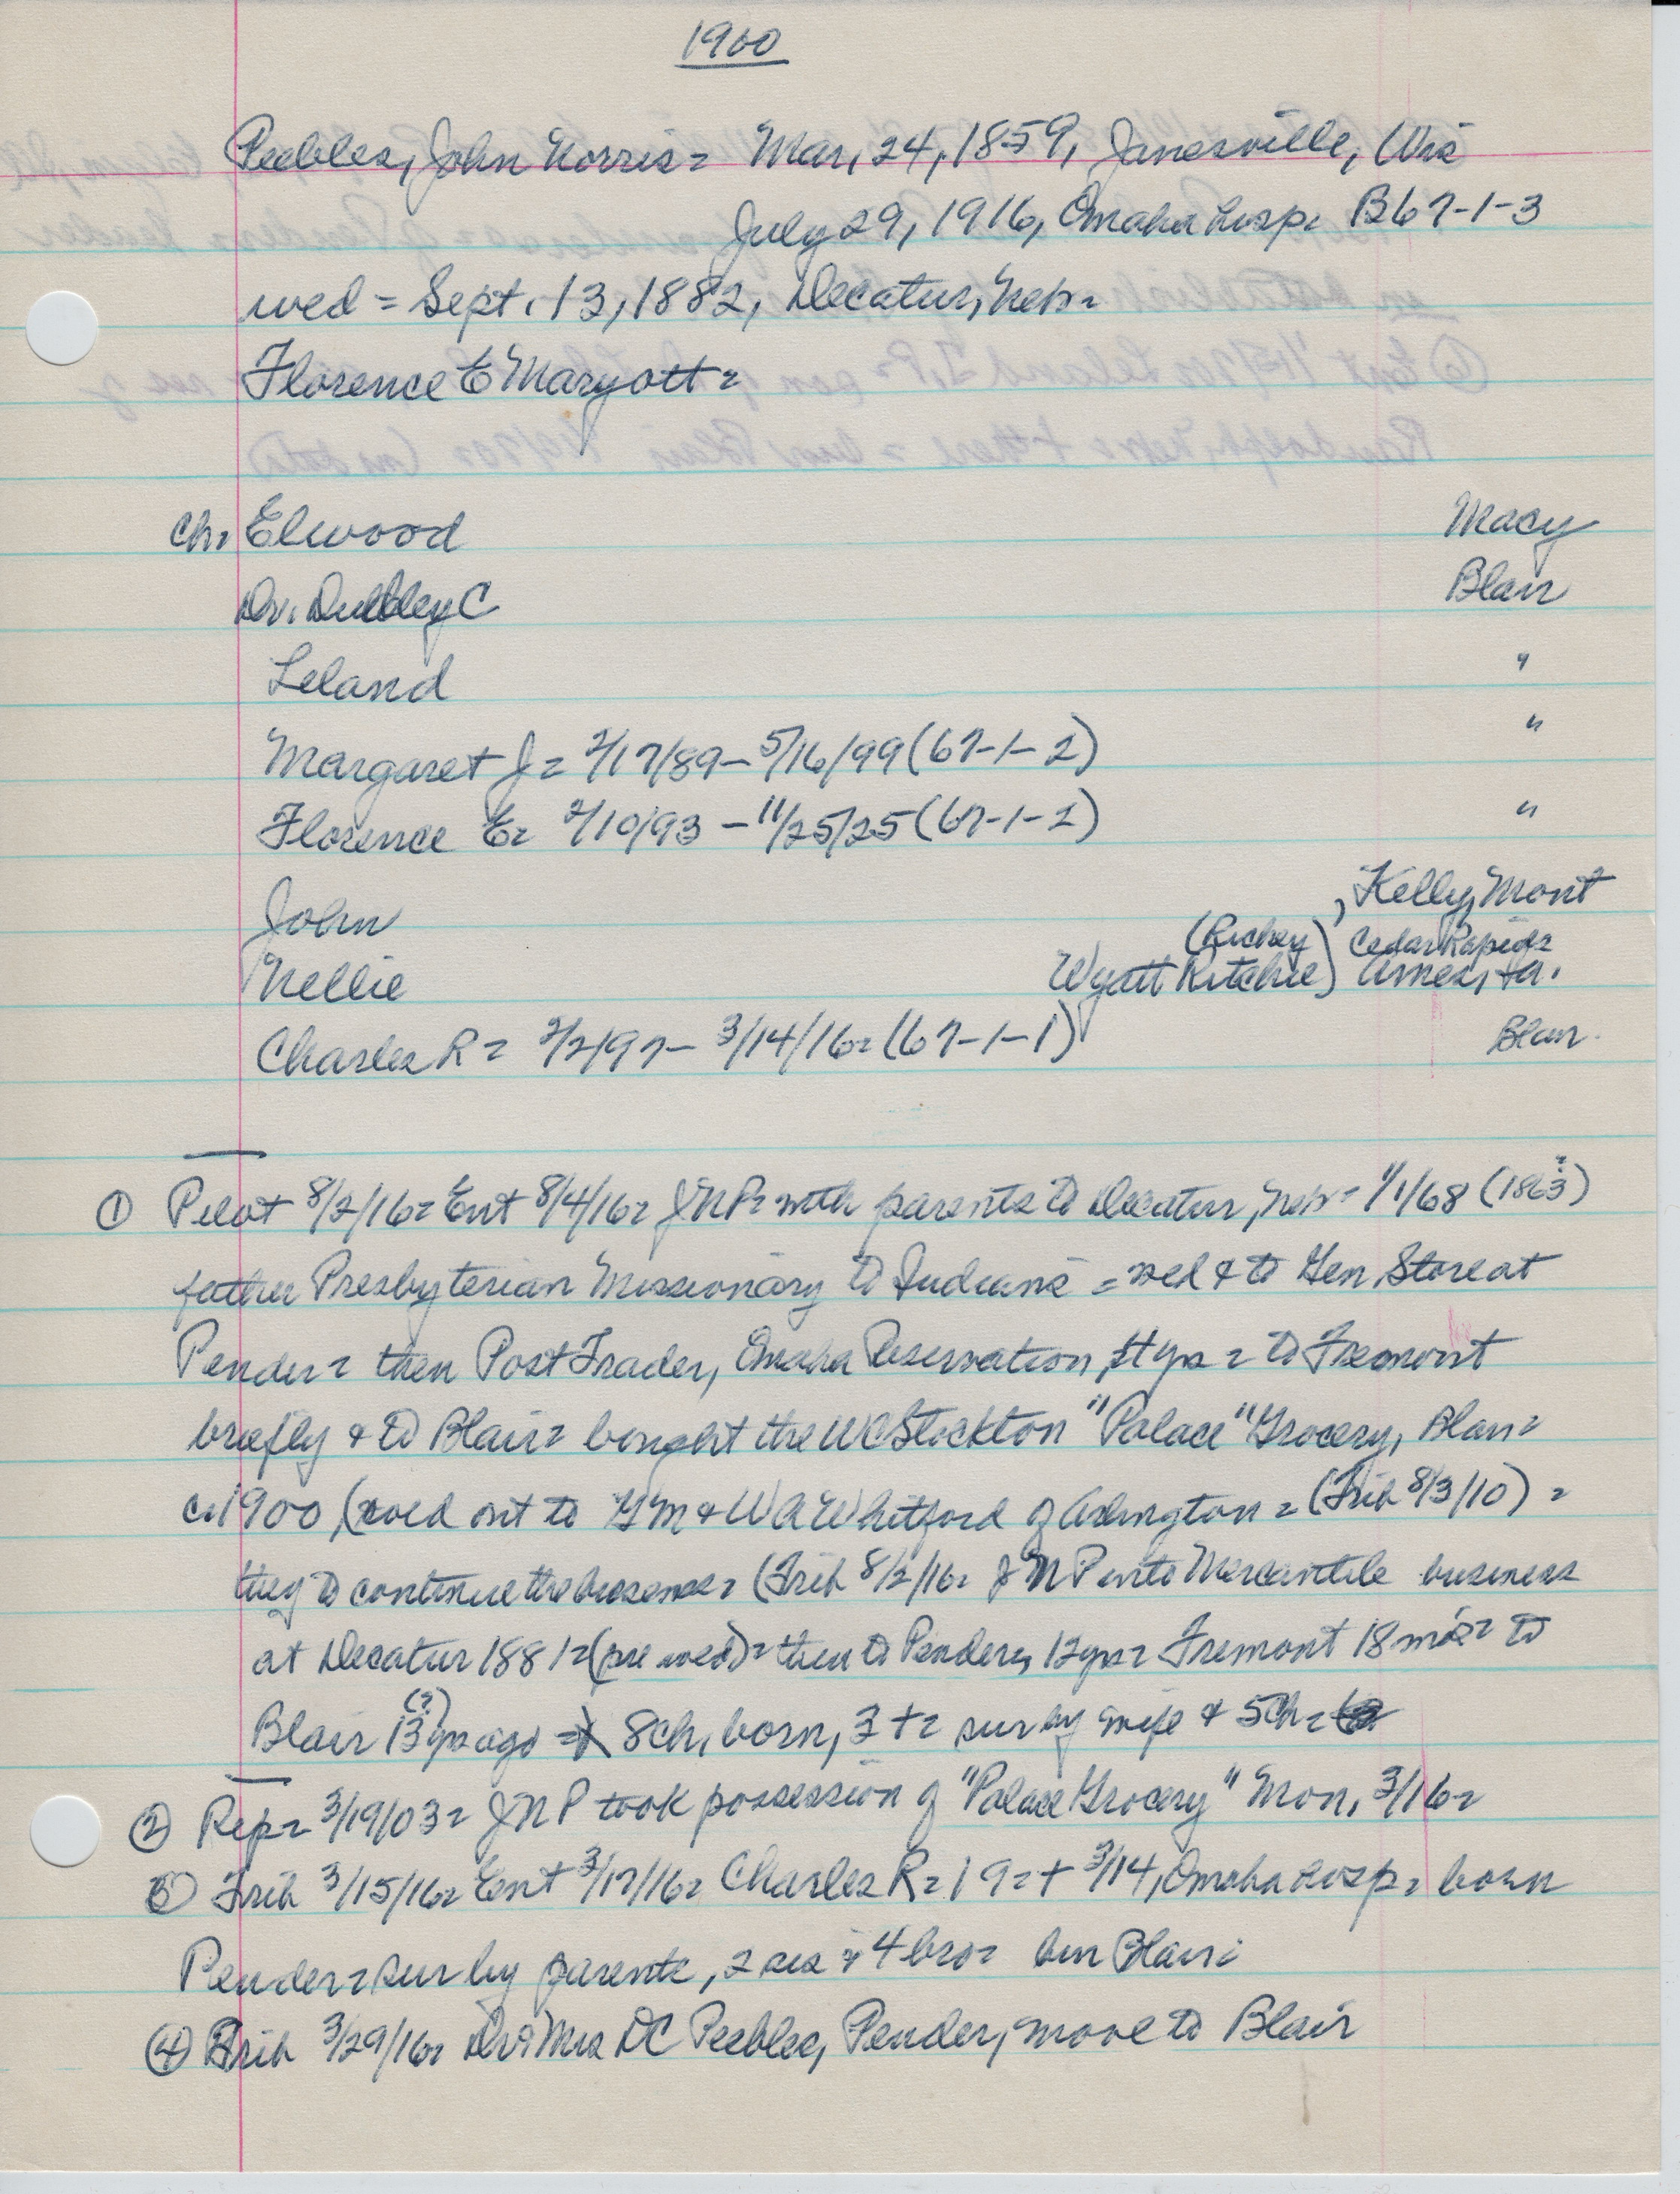 1900
Peebles, John Norris = Mar, 24, 1859, Janesville, Wis
July 29, 1916, Omaha hosp. B67-1-3
wed = Sept. 13, 1882, Decatur, Neb =
Florence E Maryott =
Ch, Elwood Macy
Dr. Dudley C Blair
Leland "
Margaret J = 2/17/89 - 5/16/99 (67-1-2) "
Florence E = 2/10/93 - 11/25/25 (67-1-2) "
John , Kelly, Mont
(Richey) Cedar Rapids
Nellie Wyatt Ritchie) Ames, Ia.
Charles R = 2/2/97 - 3/14/16 = (67-1-1) Blair
① Pilot 8/2/16 = Ent 8/4/16 = JNP = with parents to Decatur, Neb = 1/1/68 (1863?)
father Presbyterian Missionary to Indians = wed & to Gen Store at
Pender = then Post Trader, Omaha Reservation, yrs = to Fremont
briefly & to Blair = bought the WC Stockton "Palace" Grocery, Blair =
c. 1900, (sold out to GM & WA Whitford of Arlington = (Trib 8/3/10) =
they to continue the business = (Trib 8/2/16 = JNP into Mercantile business
at Decatur 1881 = (pre wed) = then to Pender, 12 yrs = Fremont 18 mos = to
Blair 13 (?) yrs ago = 8 ch, born, 3 + = sur by wife & 5 ch =
② Rep = 3/19/03 = JNP took possession of "Palace Grocery" Mon, 3/16 =
③ Trib 3/15/16 = Ent 3/17/16 = Charles R = 19 = + 3/14, Omaha hosp = born
Pender = sur by parents, 2 sis & 4 bro = bur Blair =
④ Trib 3/29/16 = Dr & Mrs DC Peebles, Pender, move to Blair